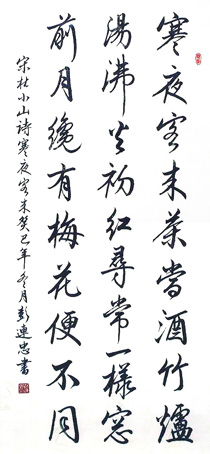 寒夜客来茶當酒竹爐
湯沸火初紅尋常一樣窓
前月纔有梅花便不同
宋杜小山詩寒夜客来癸巳年冬月彭連忠書